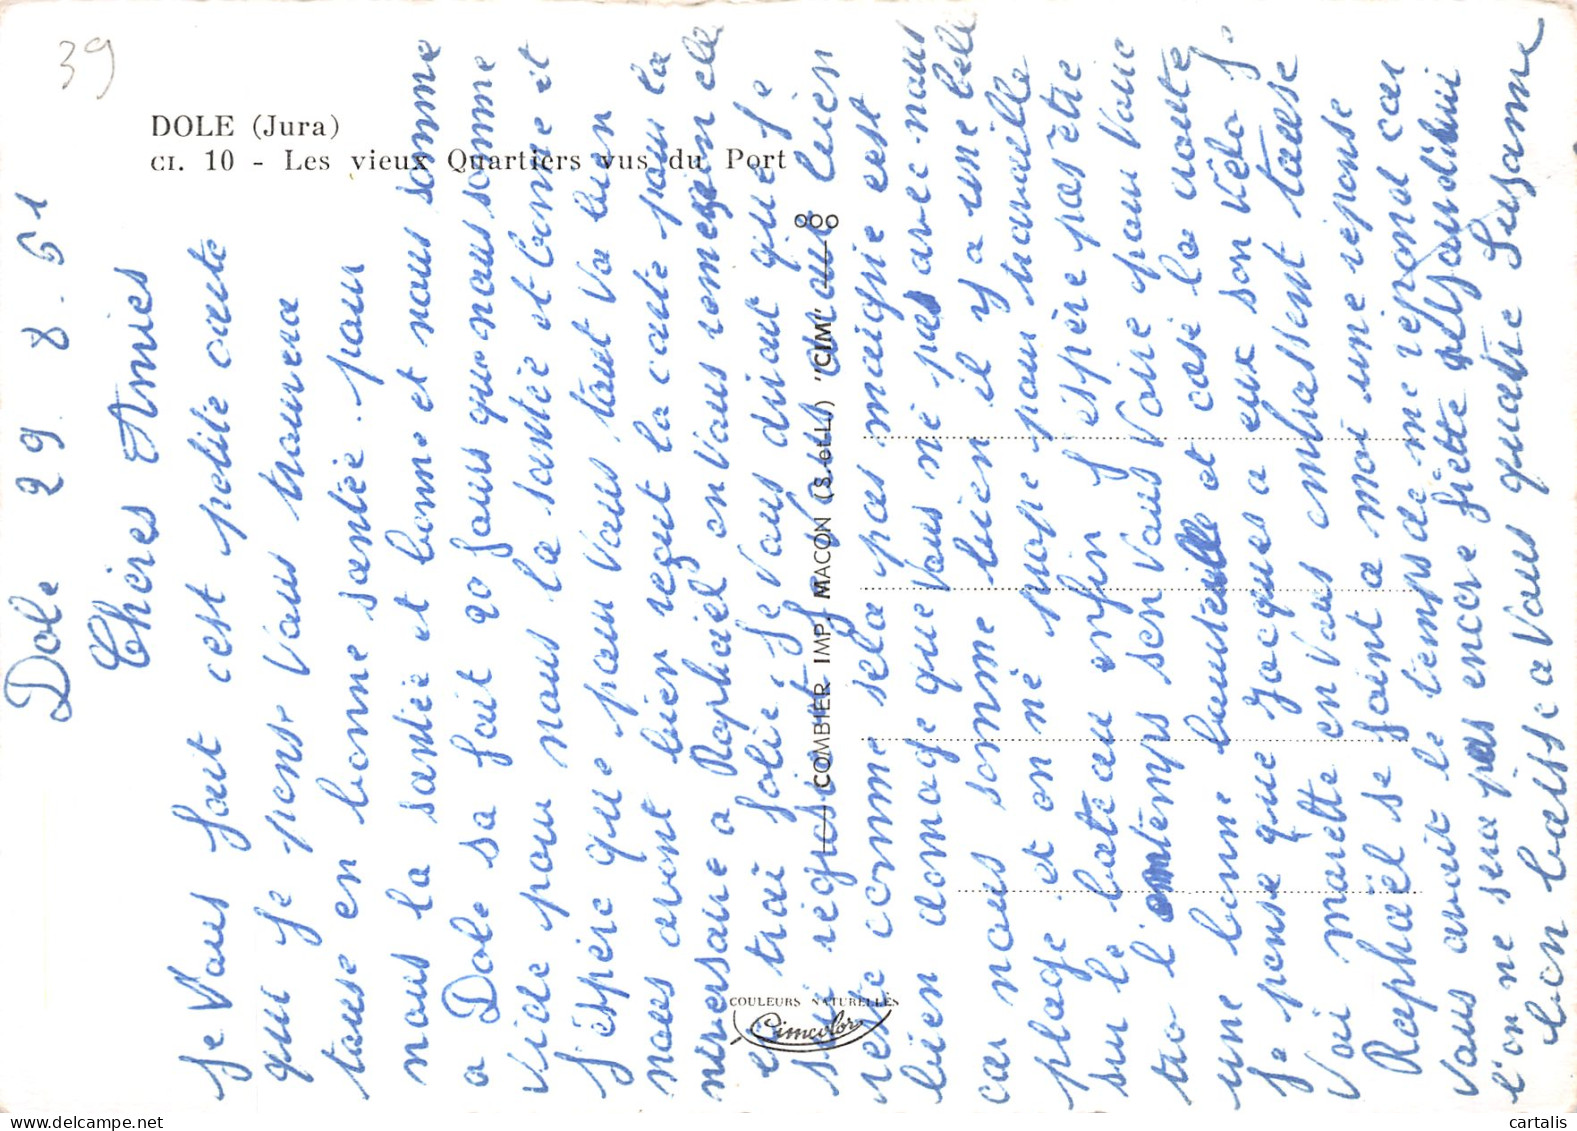 39
DOLE (Jura)
CI. 10 - Les vieux Quartiers vus du Port
COMBIER IMP. MACON (S.-et-L.) "CIM"
COULEURS NATURELLES
Cimcolor
Dole 29. 8. 61
Chères Amies
Je Vous fait cest petite carte
qui je pense Vous trouvera
tause en bonne santée. pour
nous la santée et bonne et nous somme
a Dole sa fait 20 jours que nous somme
Vide pour nous la santée et bonne et
J'espère que pour Vous tout va bien
nous avont bien reçut la carte pour la
niversaire a Raphaël on Vous remercier elle
et trai jolie. Je Vous dirait que je
suis
reste comme sela pas maigrie est
bien domage que Vous né pas avec nous
car nous somme bien il y a une belle
plage et on né pope pour travaille
sur le bateau enfin J'éspère pas être
tro l'ontemps sen Vous Voire pour Voire
une bonne bouteille et casé la croute
Je pense que Jacques a eux son Vélo J.
Voi marette en Vous embrassent tause
Raphaël se joint a moi une réponse
Vous avait le temps de me répond car
l'on ne sera pas encore Aujourd'hui
bon baisse a Vous quatre Susanne
cartalis